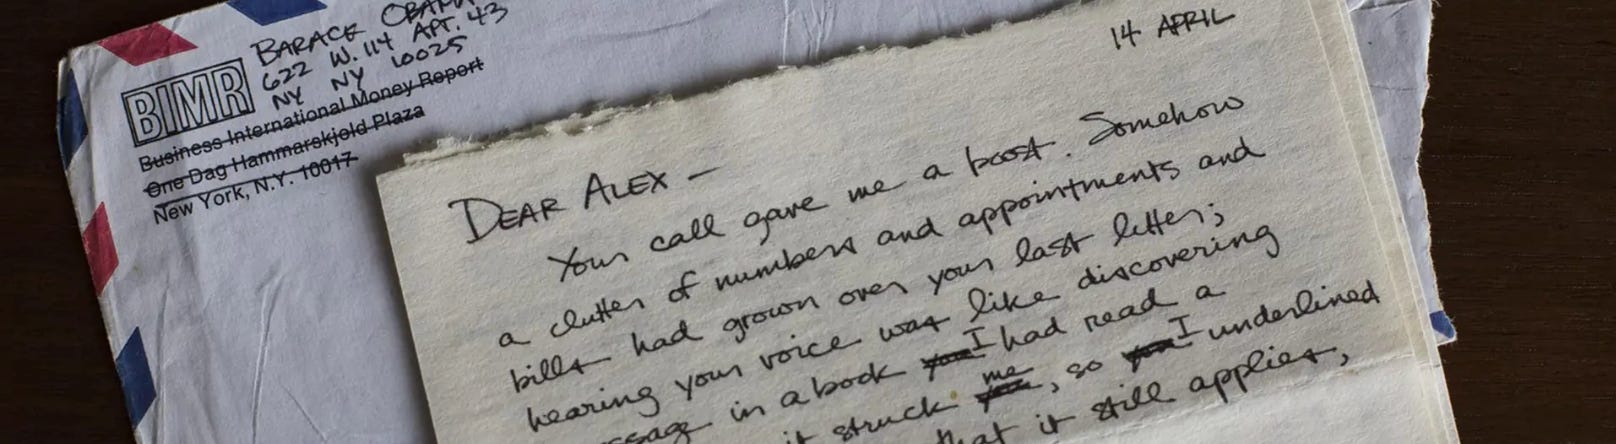 BARACK OBAMA
622 W. 114 APT. 43
NY NY 10025
BIMR
Business International Money Report
One Dag Hammarskjold Plaza
New York, N.Y. 10017
14 APRIL
DEAR ALEX –
Your call gave me a boost. Somehow
a clutter of numbers and appointments and
bills had grown over your last letter;
hearing your voice was like discovering
in a book I had read a
it struck me, so I underlined
that it still applies,